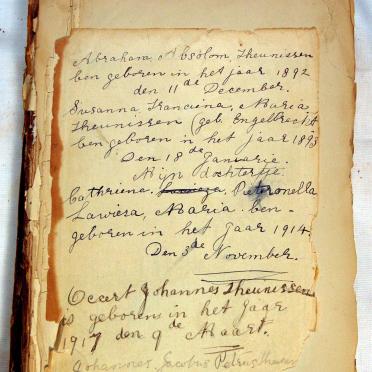 Abraham Absolom Theunissen
ben geboren in het jaar 1892
den 11de December.
Susanna Francina, Maria
Theunissen (geb Engelbrecht
ben geboren in het jaar 1893
Den 18de Januarie.
Mijn dochtertje
Cathriena, Pieteronella
Lawieza, Maria ben-
geboren in het jaar 1914
Den 3de November.
Occert Johannes Theunissen
is geborens in het Jaar
1917 den 9de Maart.
Johannes Jacobus Petrus